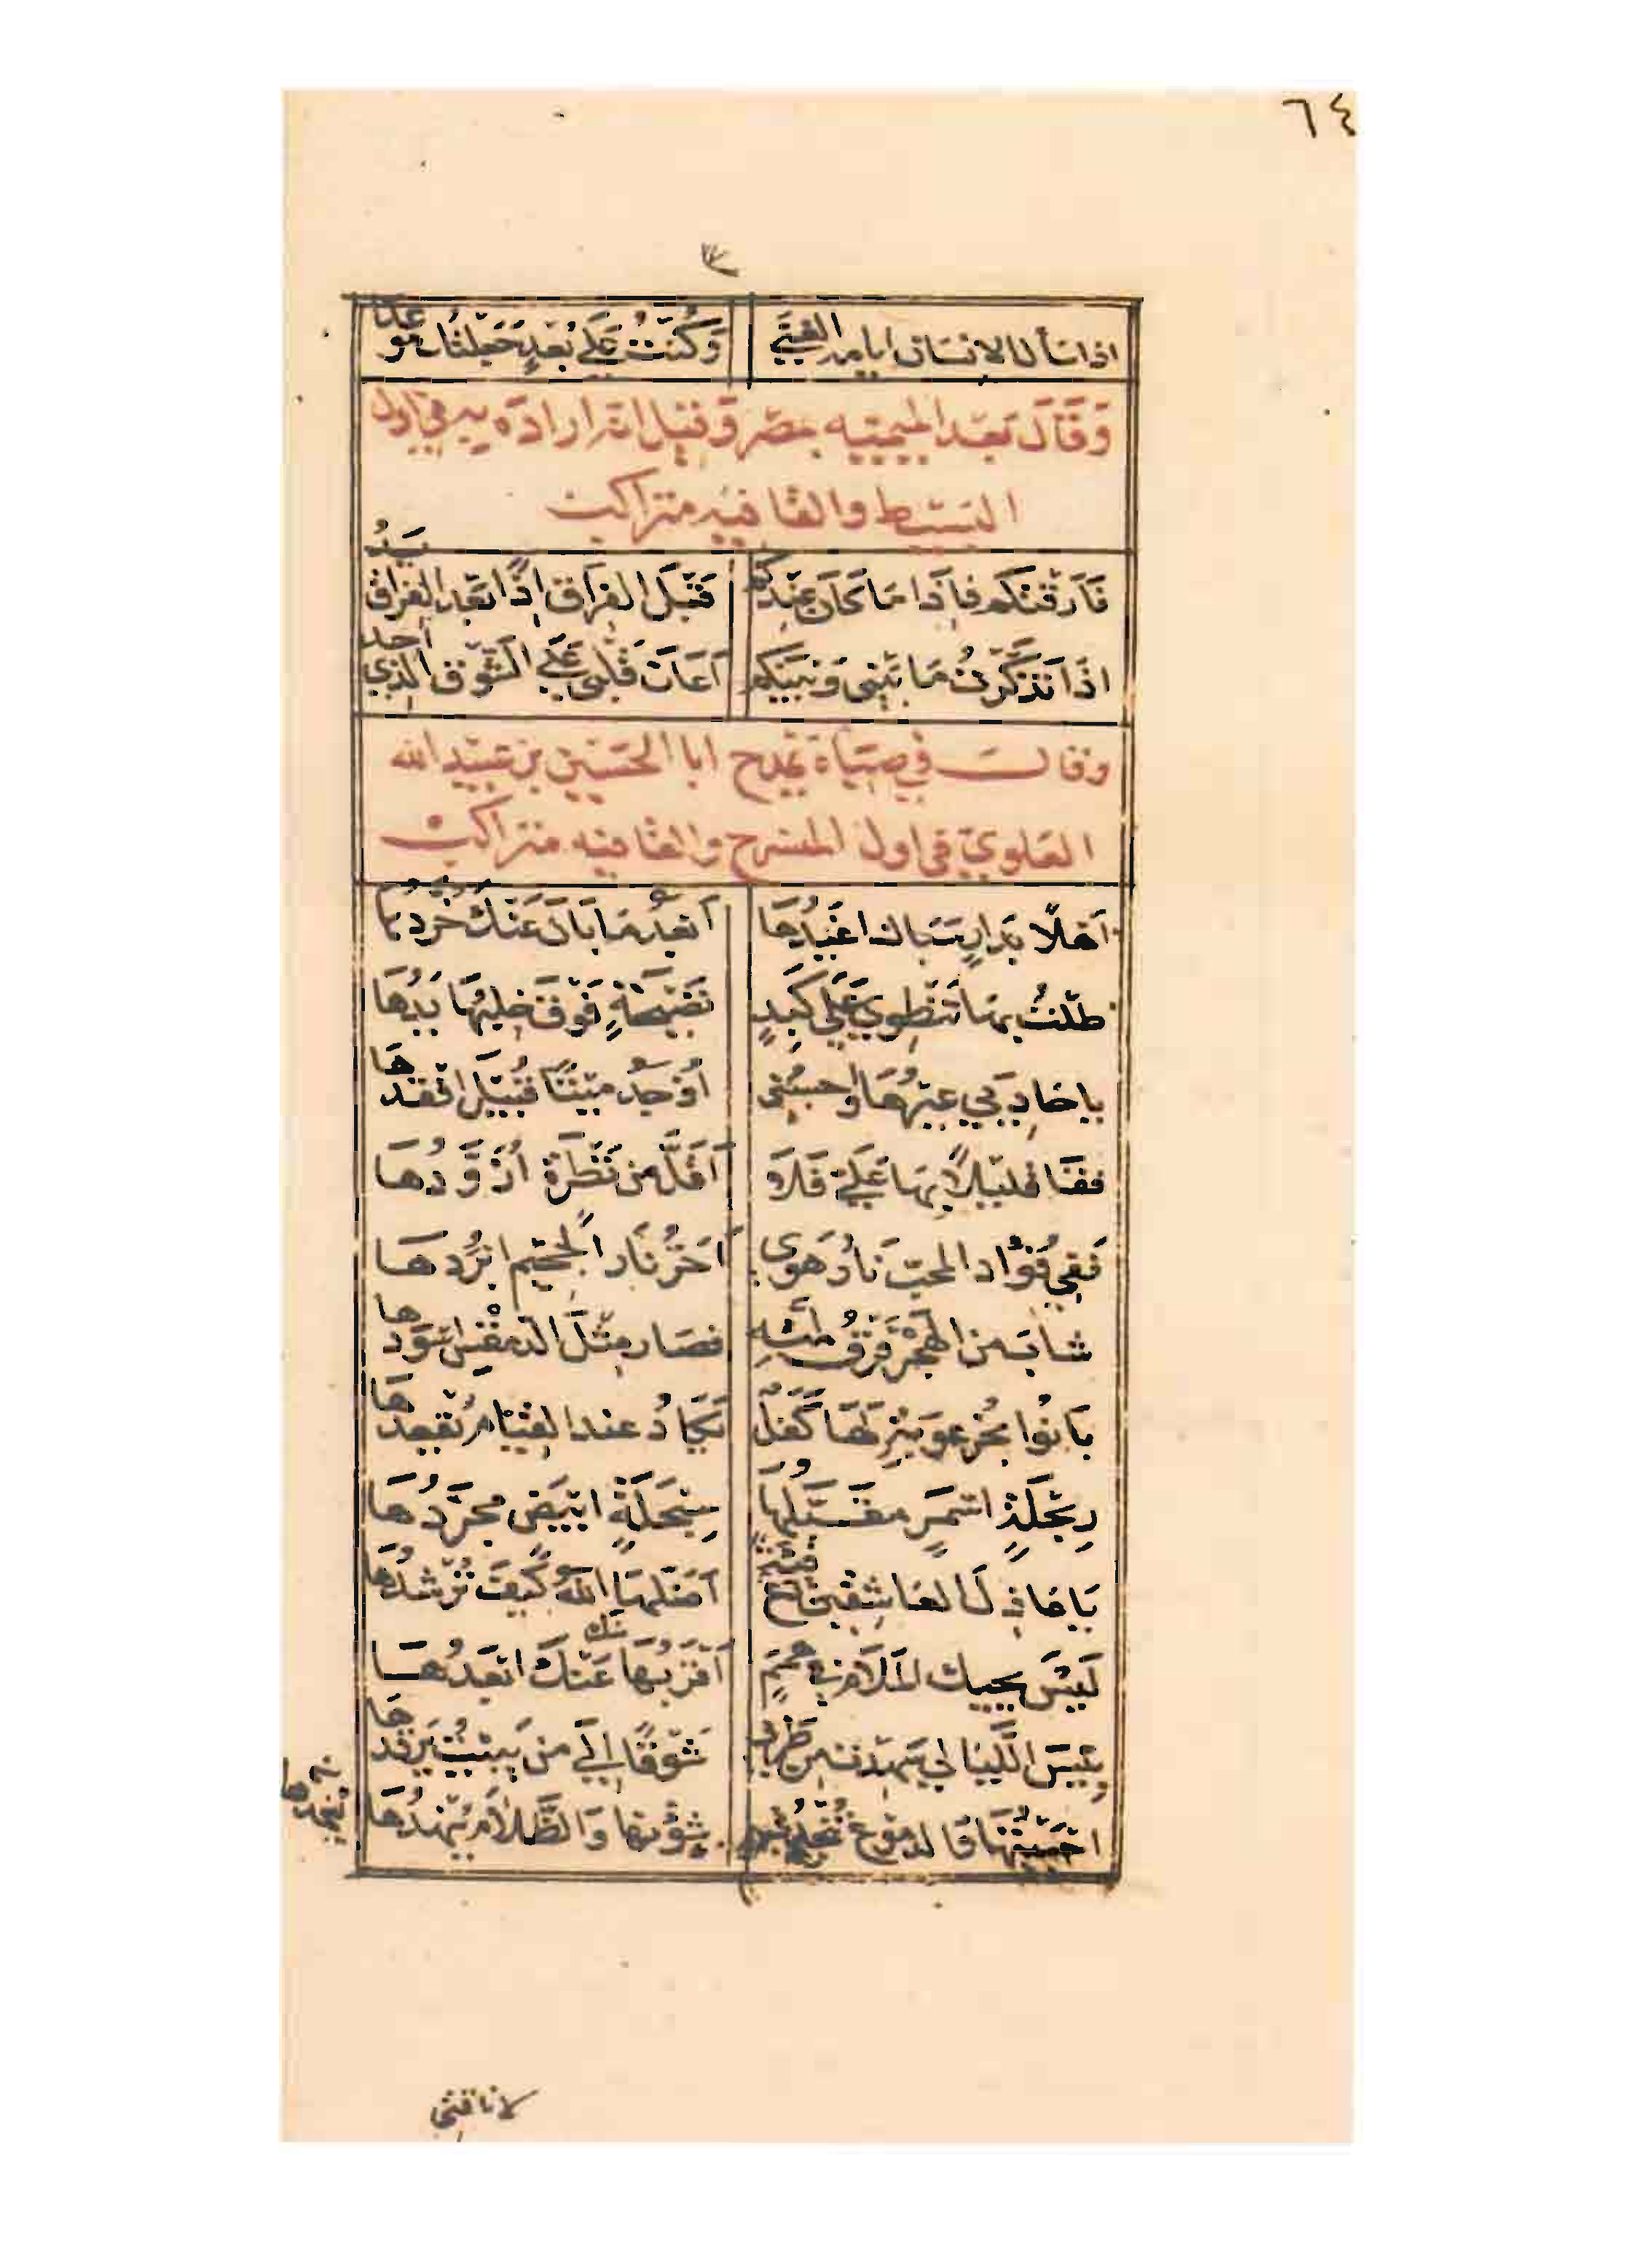 ٦٤
اذا سأل الانسان ايامه الغنى وكنت على بعد جعلنك موعدا
وَقَالَ بَعْد الميميّه بمصر وَقيل انه اراد به في اول
البسيط والقافيه متراكب
فَارَقْتكم فإذا مَا كَانَ عِنْدكم قَبْلَ الفِرَاقِ اذًا بَعْد الفراق يَدُ
اذَا تَذَكَّرْتُ مَا بَيْنِى وَبَيْنَكُم أَعَانَ قَلْبى عَلَى الشَّوْق الذي أجد
وقال في صباه يمدح ابا الحسين بن عبيد الله
العلوي في اول المنسرح والقافيه متراكب
أهلًا بدارٍ سَباك اغيدُهَا أبعدُ مَا بَانَ عَنْكَ خُرّدُها
ظلْتُ بهَا تَنْطَوِي عَلَى كَبِدٍ نَضِيجَةٍ فَوْقَ خلبها يَدُهَا
يا حادِيَي عِيرهَا واحسبُنى أُوجَدُ ميْتًا قُبَيْلَ افقدُهَا
قفَا قليلًا بهَا عَلَيَّ فَلَا أقلّ من نَظْرَةٍ أُزَوَّدُهَا
فَفِي فُؤَاد المحبّ نَارُ هَوى أَحَرُّ نَار الجَحيم ابْرَدُهَا
شابَ من الهَجْر فَرْقُ لمّته فصَار مِثْلَ الدمقس اسْوَدُهَا
بَانُوا بخُرْعوبَةٍ لهَا كَفَلٌ يَكَادُ عند القيَام يُقْعِدُهَا
رِبَحْلَةٍ اسْمَرٍ مقَبَّلُهَا سِبَحْلَةٍ ابْيَضٍ مجرّدُهَا
يَا عَاذِلَ العَاشِقين دع فئةً أضَلّهَا اللهُ كَيفَ تُرْشدُهَا
لَيْسَ يحيك المَلَام في هِمَمٍ أقْرَبُهَا عَنْكَ ابْعَدُهَا
منك
بِئسَ اللَّيَالي سَهِدْت من طربي شَوْقًا إلَى من يَبيْتُ يَرقدُهَا
احييتُهَا وَالدموع تُنْجِدُني شؤونها وَالظَّلَام يُنْجِدُهَا
ينجدها
لا ناقتي